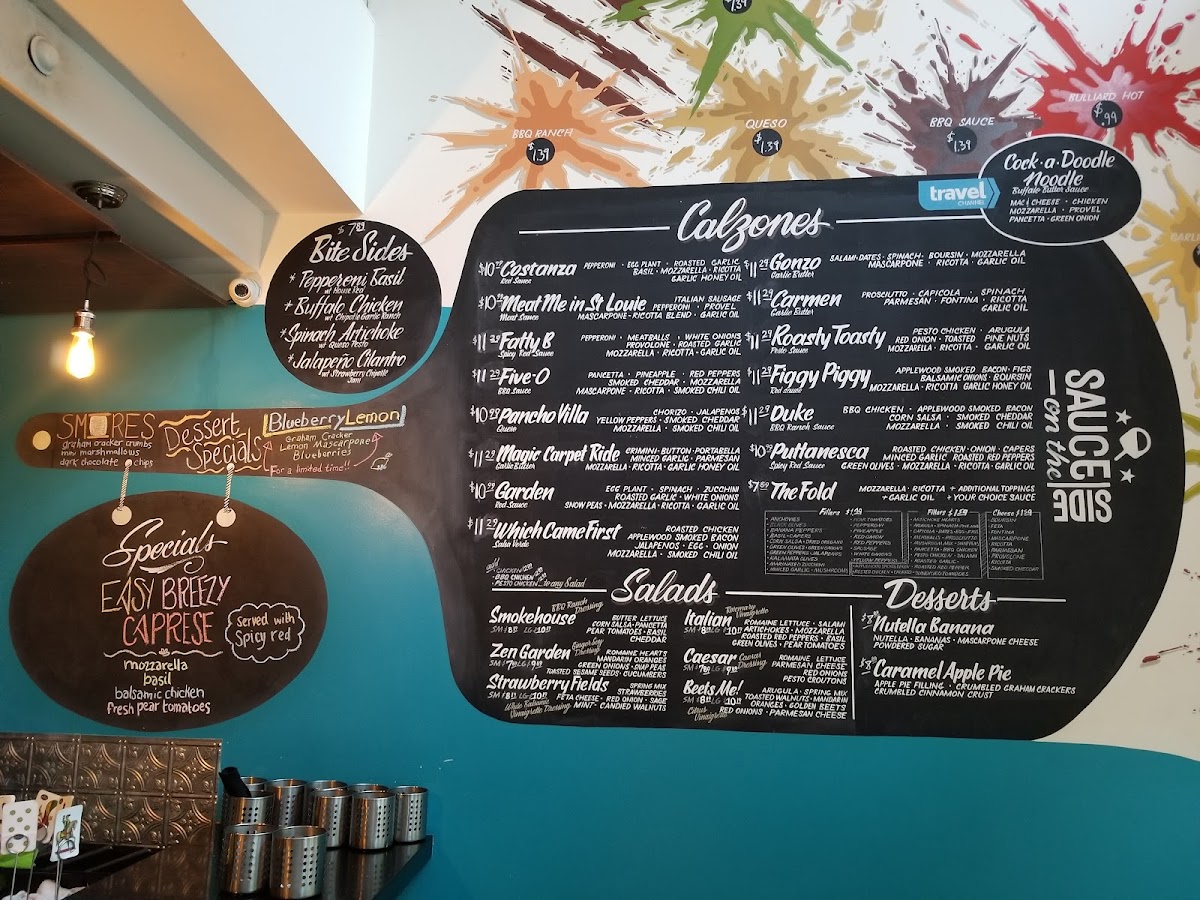 $1.39
BBQ RANCH
$1.39
QUESO
$1.39
BBQ SAUCE
$1.39
BULLIARD HOT
$.99
Cock·a·Doodle
Noodle
Buffalo Butter Sauce
MAC & CHEESE · CHICKEN
MOZZARELLA · PROVEL
PANCETTA · GREEN ONION
travel
CHANNEL
Bite Sides
* Pepperoni Basil
w/ House Red
+ Buffalo Chicken
w/ Chipotle Garlic Ranch
*Spinach Artichoke
w/ Queso Pesto
*Jalapeño Cilantro
w/ Strawberry Chipotle
Jam
SMORES
graham cracker crumbs
mini marshmallows
dark chocolate chips
Dessert
Specials
Blueberry Lemon
Graham Cracker
Lemon Mascarpone
Blueberries
For a limited time!!
Specials
EASY BREEZY
CAPRESE
Served with
Spicy red
mozzarella
basil
balsamic chicken
fresh pear tomatoes
Calzones
Costanza
Red Sauce
PEPPERONI · EGG PLANT · ROASTED GARLIC
BASIL · MOZZARELLA · RICOTTA
GARLIC HONEY OIL
Meat Me in St Louie
Meat Sauce
ITALIAN SAUSAGE
PEPPERONI · PROVEL
MASCARPONE-RICOTTA BLEND · GARLIC OIL
$11.29 Fatty B
Spicy Red Sauce
PEPPERONI · MEATBALLS · WHITE ONIONS
PROVOLONE · ROASTED GARLIC
MOZZARELLA · RICOTTA · GARLIC OIL
$11.29 Five-O
BBQ Sauce
PANCETTA · PINEAPPLE · RED PEPPERS
SMOKED CHEDDAR · MOZZARELLA
MASCARPONE · RICOTTA · SMOKED CHILI OIL
Pancho Villa
Queso
CHORIZO · JALAPENOS
YELLOW PEPPERS · SMOKED CHEDDAR
MOZZARELLA · SMOKED CHILI OIL
$11.29 Magic Carpet Ride
Garlic Butter
CRIMINI · BUTTON · PORTABELLA
MINCED GARLIC · PARMESAN
MOZZARELLA · RICOTTA · GARLIC HONEY OIL
Garden
Red Sauce
EGG PLANT · SPINACH · ZUCCHINI
ROASTED GARLIC · WHITE ONIONS
SNOW PEAS · MOZZARELLA · RICOTTA · GARLIC OIL
$11.29 Which Came First
Salsa Verde
ROASTED CHICKEN
APPLEWOOD SMOKED BACON
JALAPENOS · EGG · ONION
MOZZARELLA · SMOKED CHILI OIL
$11.29 Gonzo
Garlic Butter
SALAMI · DATES · SPINACH · BOURSIN · MOZZARELLA
MASCARPONE · RICOTTA · GARLIC OIL
$11.29 Carmen
Garlic Butter
PROSCIUTTO · CAPICOLA · SPINACH
PARMESAN · FONTINA · RICOTTA
GARLIC OIL
$11.29 Roasty Toasty
Pesto Sauce
PESTO CHICKEN · ARUGULA
RED ONION · TOASTED PINE NUTS
MOZZARELLA · RICOTTA · GARLIC OIL
$11.29 Figgy Piggy
Red Sauce
APPLEWOOD SMOKED BACON · FIGS
BALSAMIC ONIONS · BOURSIN
MOZZARELLA · RICOTTA · GARLIC HONEY OIL
$11.29 Duke
BBQ Ranch Sauce
BBQ CHICKEN · APPLEWOOD SMOKED BACON
CORN SALSA · SMOKED CHEDDAR
MOZZARELLA · SMOKED CHILI OIL
Puttanesca
Spicy Red Sauce
ROASTED CHICKEN · ONION · CAPERS
MINCED GARLIC · ROASTED RED PEPPERS
GREEN OLIVES · MOZZARELLA · RICOTTA · GARLIC OIL
The Fold
MOZZARELLA · RICOTTA + ADDITIONAL TOPPINGS
+ GARLIC OIL + YOUR CHOICE SAUCE
Fillers
Fillers
Cheese
SAUCE
on the
SIDE
Salads
Smokehouse
BBQ Ranch
Dressing
BUTTER LETTUCE
CORN SALSA · PANCETTA
PEAR TOMATOES · BASIL
CHEDDAR
Zen Garden
ROMAINE HEARTS
MANDARIN ORANGES
GREEN ONIONS · SNAP PEAS
TOASTED SESAME SEEDS · CUCUMBERS
Strawberry Fields
SPRING MIX
STRAWBERRIES
FETA CHEESE · RED ONION · SAGE
MINT · CANDIED WALNUTS
Italian
Rosemary
Vinaigrette
ROMAINE LETTUCE · SALAMI
ARTICHOKES · MOZZARELLA
ROASTED RED PEPPERS · BASIL
GREEN OLIVES · PEAR TOMATOES
Caesar
Caesar
Dressing
ROMAINE LETTUCE
PARMESAN CHEESE
RED ONIONS
PESTO CROUTONS
Beets Me!
Citrus
Vinaigrette
ARUGULA · SPRING MIX
TOASTED WALNUTS · MANDARIN
ORANGES · GOLDEN BEETS
RED ONIONS · PARMESAN CHEESE
Desserts
Nutella Banana
NUTELLA · BANANAS · MASCARPONE CHEESE
POWDERED SUGAR
Caramel Apple Pie
APPLE PIE FILLING · CRUMBLED GRAHAM CRACKERS
CRUMBLED CINNAMON CRUST